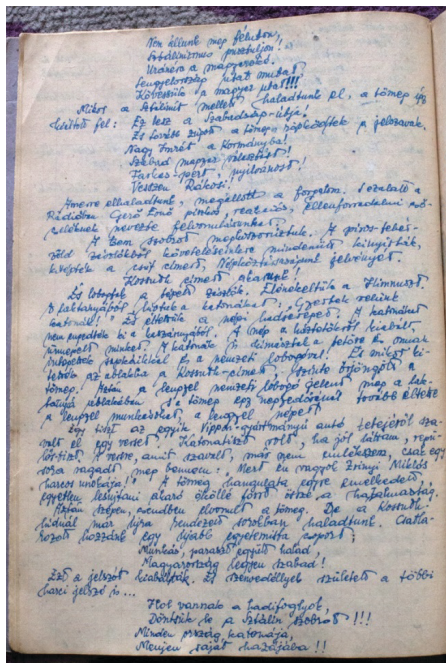 Nem állunk meg félúton,
Sztálinizmus pusztuljon!
Uránért a magyaroké.
Lengyelország utat mutat
Kövessük a magyar utat!!!
Mikor a Sztálinit mellett haladtunk el, a tömeg így
kiáltott fel: Ez lesz a Szabadság-útja!
És tovább zúgott a tömeg, röpködtek a jelszavak.
Nagy Imrét a Kormányba!
Szabad magyar választást!
Farkas-pert, nyilvánost!
Vesszen Rákosi!
Amerre elhaladtunk, megállott a forgalom. Ezalatt a
Rádióban Gerő Ernő piszkos, reakciós, ellenforradalmi
nevezte felvonulásunkat.
A Bem szobrot megkoszorúztuk. A piros-fehér-
zöld zászlókból követelésünkre mindenütt kivágták,
kitépték a csíf címert, Népköztársaságunk jelvényét.
Kossuth címert akarunk!
És lobogtak a tépett zászlók. Elénekeltük a Himnuszt.
A laktanyából hívtuk a katonákat: "Gyertek velünk
katonák!" És éltettük a népi hadsereget. A katonákat
nem engedték ki a kaszárnyából. A nép a háztetőkről kiabált,
ünnepelt minket. A katonák is kimásztak a tetőre és onnan
integettek sapkáikkal és a nemzeti lobogóval! És mikor ki-
tették az ablakba a Kossuth-címert, szinte őrjöngött a
tömeg! Aztán a lengyel nemzeti lobogó jelent meg a lak-
tanya ablakában s a tömeg tovább éltette
a lengyel munkásokat, a lengyel népet
Egy tiszt az egyik Vippon-gyártmányú autó tetejéről sza-
valt el egy verset. Katonatiszt volt, ha jól láttam, repü-
lőstiszt. A versre, amit szavalt, már nem emlékszem, csak egy
sora ragadt meg bennem: "Mert én vagyok Zrínyi Miklós
harcos unokája!" A tömeg hangulata egyre emelkedett,
egyetlen lesújtani akaró ököllé forrt össze a hazafiasság.
Aztán szépen, rendben elvonult a tömeg. De a Kossuth
hídnál már újra rendezett sorokban haladtunk. Csatla-
kozott hozzánk egy újabb egyetemista csoport,
Munkás, paraszt együtt halad,
Magyarország legyen szabad!
Ezt a jelszót kiabálták. És szenvedéllyel született a többi
harci jelszó is...
Hol vannak a hadifoglyok,
Döntsük le a Sztálin szobrot!!!
Minden ország katonája,
Menjen saját hazájába!!